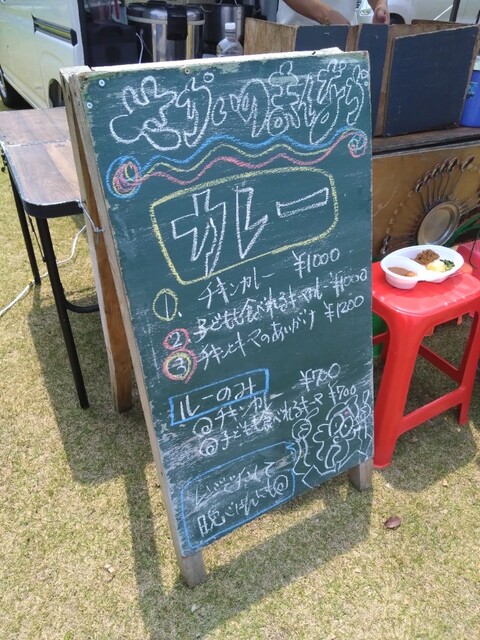 せかいのまんぷく
カレー
1. チキンカレー ¥1000
2. 子どもも食べれるキーマカレー ¥1000
3. チキンとキーマのあいがけ ¥1200
ルーのみ
@チキンカレー ¥700
@子どもも食べれるキーマ ¥700
晩ごはんにも@